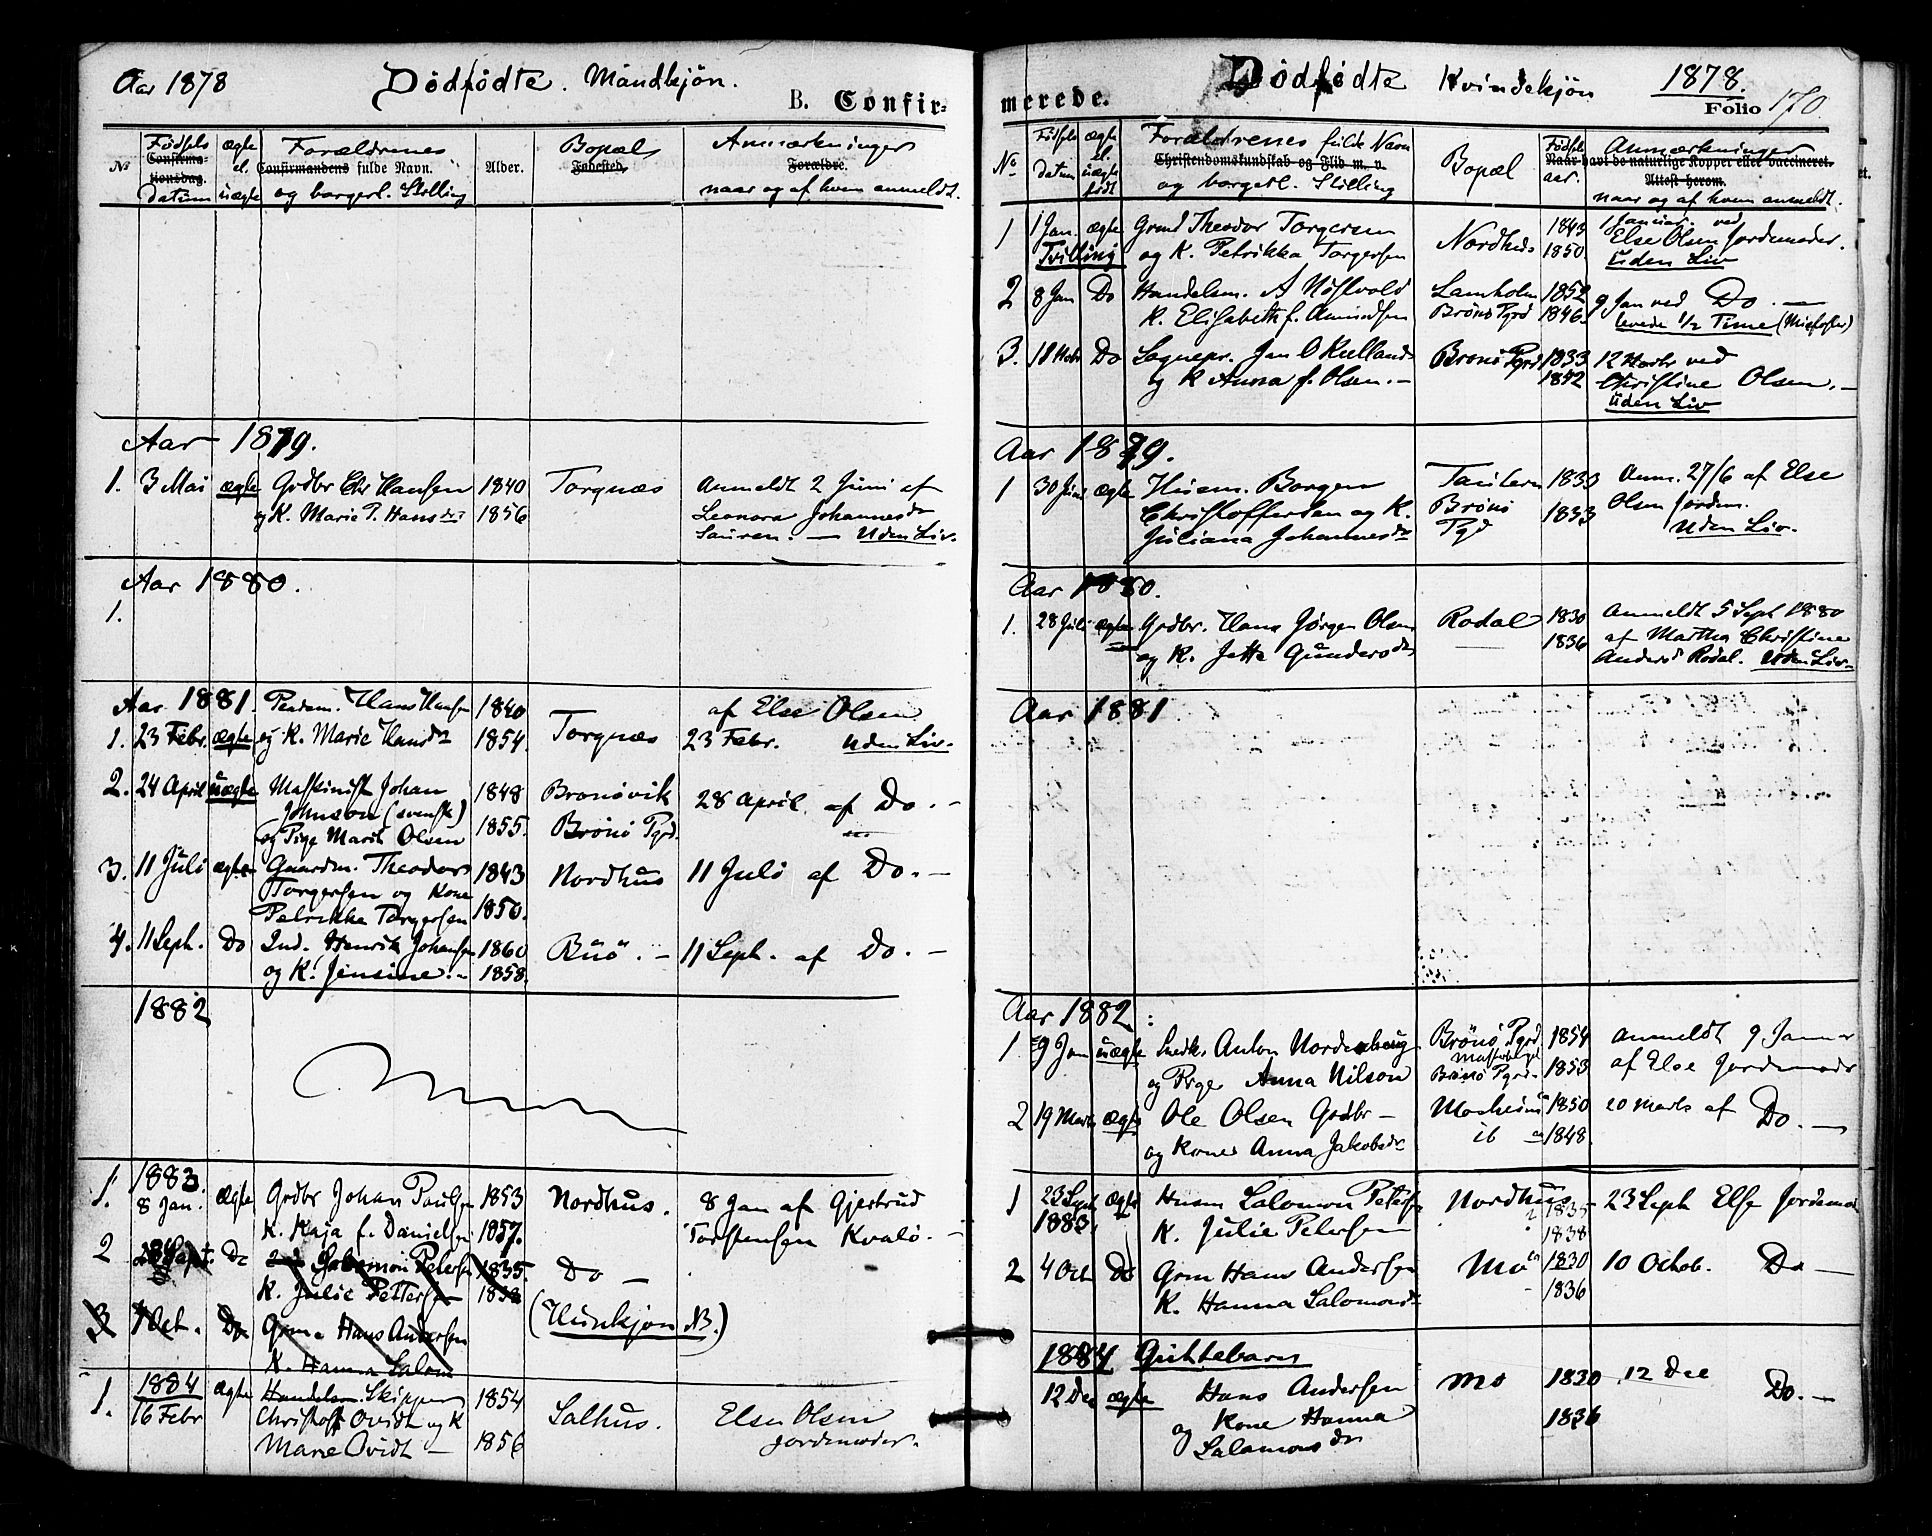 Aar 1878 Dødfødte. Mandkjøn.
B. Confir-
Fødsels ægte Forældrenes Bopæl Anmærkninger
№ Confirma- el. Confirmandens fulde Navn. Alder. Fødested. Forældre.
tionsdag. uægte og borgerl. Stilling naar og af hvem anmeldt.
Datum
Aar 1879.
1. 3 Mai ægte Grdbr Chr Hansen 1840 Torgnæs Anmeldt 2 Juni af
og K. Marie P. Hansdr 1856 Leonora Johannesdr
Sauren. — Uden Liv.
Aar 1880.
1.
Aar 1881. Hans Hansen 1840 af Else Olsen
1. 23 Febr. ægte og K. Marie Hansdr 1854. Torgnæs 23 Febr. Uden Liv.
2. 24 April uægte Maskinist Johan 1848 Brønøvik 28 April af Do. —
Johnson (svensk)
og Pige Marit Olsen 1855. Brønø Pgrd.
3. 11 Juli ægte Gaardm. Theodor 1843 Nordhus 11 Juli af Do. —
Torgersen og Kone
Petrikke Torgersen 1850.
4. 11 Septr. Do Ind. Henrik Johansen 1860 Buø. — 11 Septr. af Do. —
og K. Jensine. — 1858.
1882
1883
1. 8 Jan. ægte Grdbr Johan Paulsen 1853 Nordhus. 8 Jan af Gjertrud
K. Kaja f. Danielsen 1857. Torstensen Kvalø. —
2 Do Salomon Petersen 1835. Do —
K. Julie Pettersen 1838
3 4 Oct. Do Grm. Hans Andersen (Hunkjøn NB.)
K. Hanna Salom
1884
1. 16 Febr ægte Handelsm. Skipper 1854 Salhus. Else Olsen
Christoff Ovidt og K
Marie Ovidt — 1856 Jordemoder.
Dødfødte Kvindekjøn 1878.
merede. Folio 170.
Fødsels ægte Forældrenes fulde Navn Bopæl Fødsels Anmærkninger
№ datum el. Christendomskundskab og Flid m. v. aar. Naar havt de naturlige Kopper eller vaccineret.
uægte og borgerl. Stilling Attest herom.
født naar og af hvem anmeldt.
1 1 Jan. ægte Grmd Theodor Torgersen Nordhus 1843 1 Januar ved
Tvilling og K. Petrikka Torgersen 1850. Else Olsen Jordemoder.
uden Liv
2 8 Jan Do Handelsm. A Nøstvold 1852 9 Jan ved Do. —
K. Elisabeth f. Amundsen Brønø Pgrd 1846. levede 1/2 Time
3. Do Jan O Kulland Brønø Pgrd 1833 ved
og K Anna f. Olsen. — 1842 Christine Olsen. —
uden Liv
Aar 1879.
1 30 Juni ægte Husm. Borgen 1833 Anm. 27/6 af Else
Christoffersen og K. Brønø Olsen Jordem.
Juliana Johannesdr Pgd 1833 Uden Liv.
Aar 1880.
1. 28 Juli ægte Grdbr. Hans Jørgen Olsen Rodal 1830 Anmeldt 5 Sept 1880
og K. Jette Gundersdr — 1836 af Martha Christine
Andersd Rodal. Uden Liv.
Aar 1881
Aar 1882:
1 9 Jan uægte Snedk. Anton Nordenhaug Brønø Pgrd 1854 Anmeldt 9 Januar
og Pige Anna Nilson Brønø Pgrd. 1853 af Else Jordemoder
2 19 Marts ægte Ole Olsen Grdbr — 1850 20 Marts af Do. —
og Kone Anna Jakobsdr ib 1848.
1 23 Sept ægte Husm Salomon Petersen Nordhus 1835 23 Sept Else Jordemod
1883. K. Julie Petersen 1838
2 4 Oct Do Grm Hans Andersen Mo 1830 10 Octob. Do —
K. Hanna Salomonsdr 1836
1884 Guttebarn
12 Dec ægte Hans Andersen Mo 1830 12 Dec Do. —
og Kone Hanna 1836
Salamonsdr